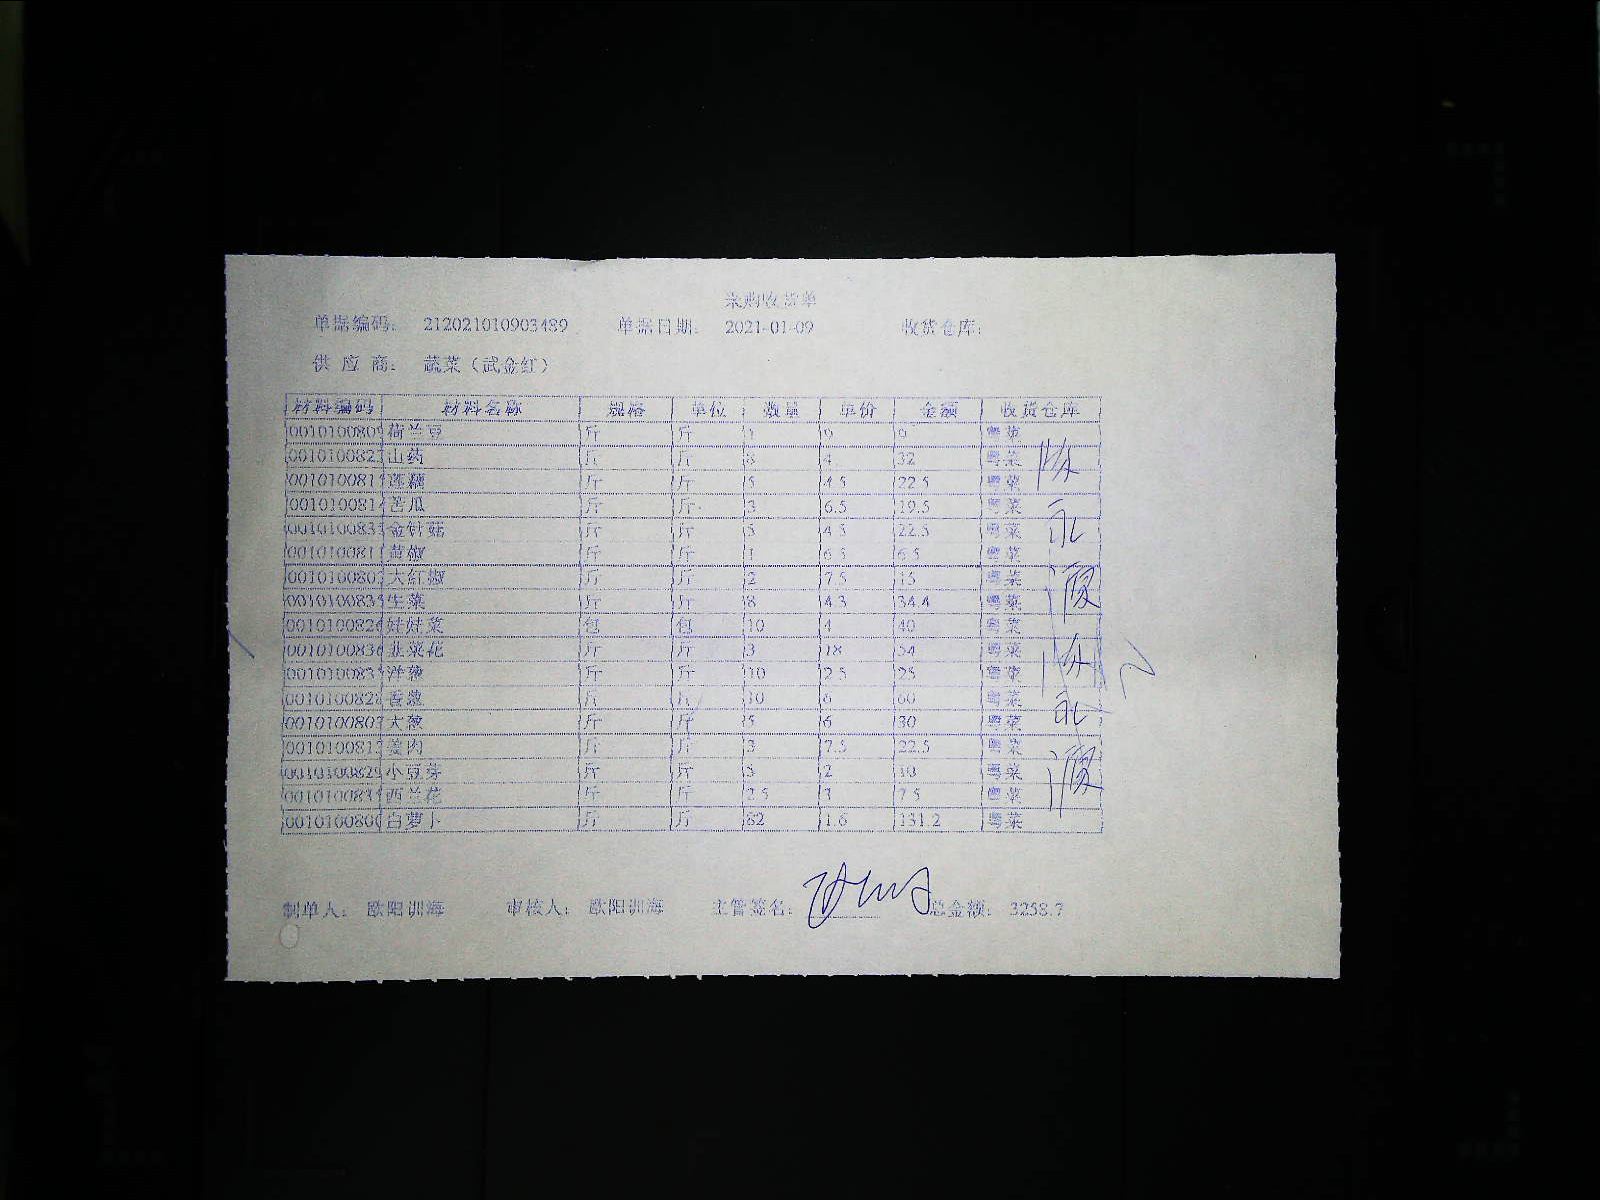 采购收货单
单据编码： 212021010903489 单据日期： 2021-01-09 收货仓库：
供 应 商： 蔬菜（武金红）
材料编码 材料名称 规格 单位 数量 单价 金额 收货仓库
001010080 荷兰豆 斤 斤 1 9 9 粤菜
001010082 山药 斤 斤 8 4 32 粤菜
001010081 莲藕 斤 斤 5 4.5 22.5 粤菜
001010081 苦瓜 斤 斤 3 6.5 19.5 粤菜
001010083 金针菇 斤 斤 5 4.5 22.5 粤菜
001010081 黄椒 斤 斤 1 6.5 6.5 粤菜
001010080 大红椒 斤 斤 2 7.5 15 粤菜
001010083 生菜 斤 斤 8 4.3 34.4 粤菜
001010082 娃娃菜 包 包 10 4 40 粤菜
001010083 韭菜花 斤 斤 3 18 54 粤菜
001010083 洋葱 斤 斤 10 2.5 25 粤菜
001010082 香葱 斤 斤 10 6 60 粤菜
001010080 大葱 斤 斤 5 6 30 粤菜
001010081 姜肉 斤 斤 3 7.5 22.5 粤菜
001010082 小豆芽 斤 斤 2 10 粤菜
001010083 西兰花 斤 斤 2.5 3 7.5 粤菜
001010080 白萝卜 斤 斤 82 1.6 131.2 粤菜
制单人： 欧阳训海 审核人： 欧阳训海 主管签名： 总金额： 3258.7